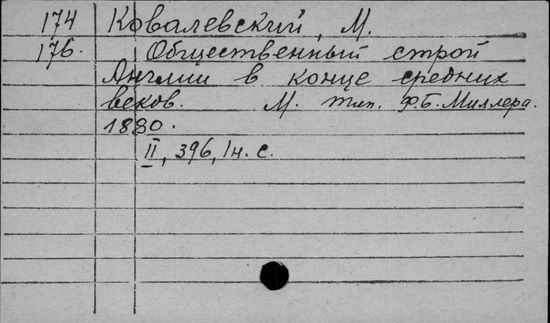 174 Ковалевский, М.
176. Общественный строй
Англии в конце средних
веков. М. тип. Ф.Б. Миллера.
1880.
II, 396, 1н. с.